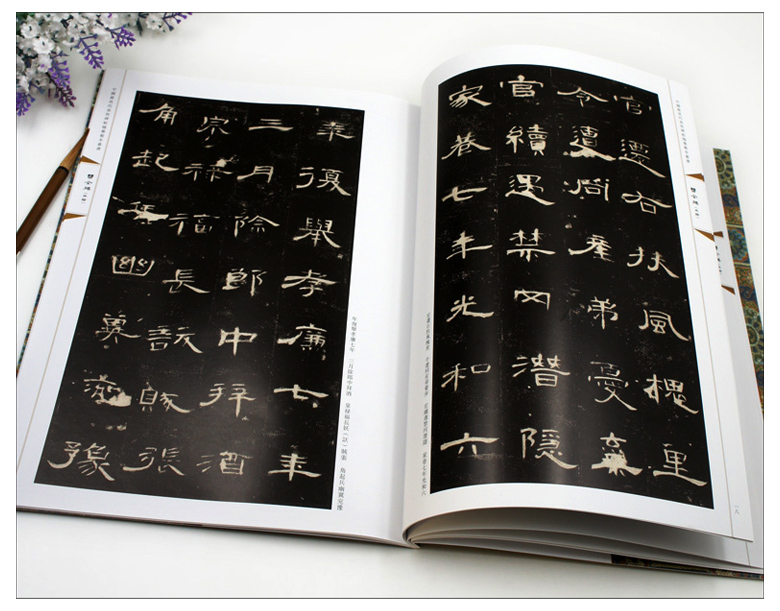 官遷右扶風槐里
令遭同產弟憂棄
官續遇禁网潛隱
家巷七年光和六
年復舉孝廉七年
三月除郎中拜酒
泉祿福長訞賊張
角起兵幽冀兗豫
曹全碑
曹全碑
一八